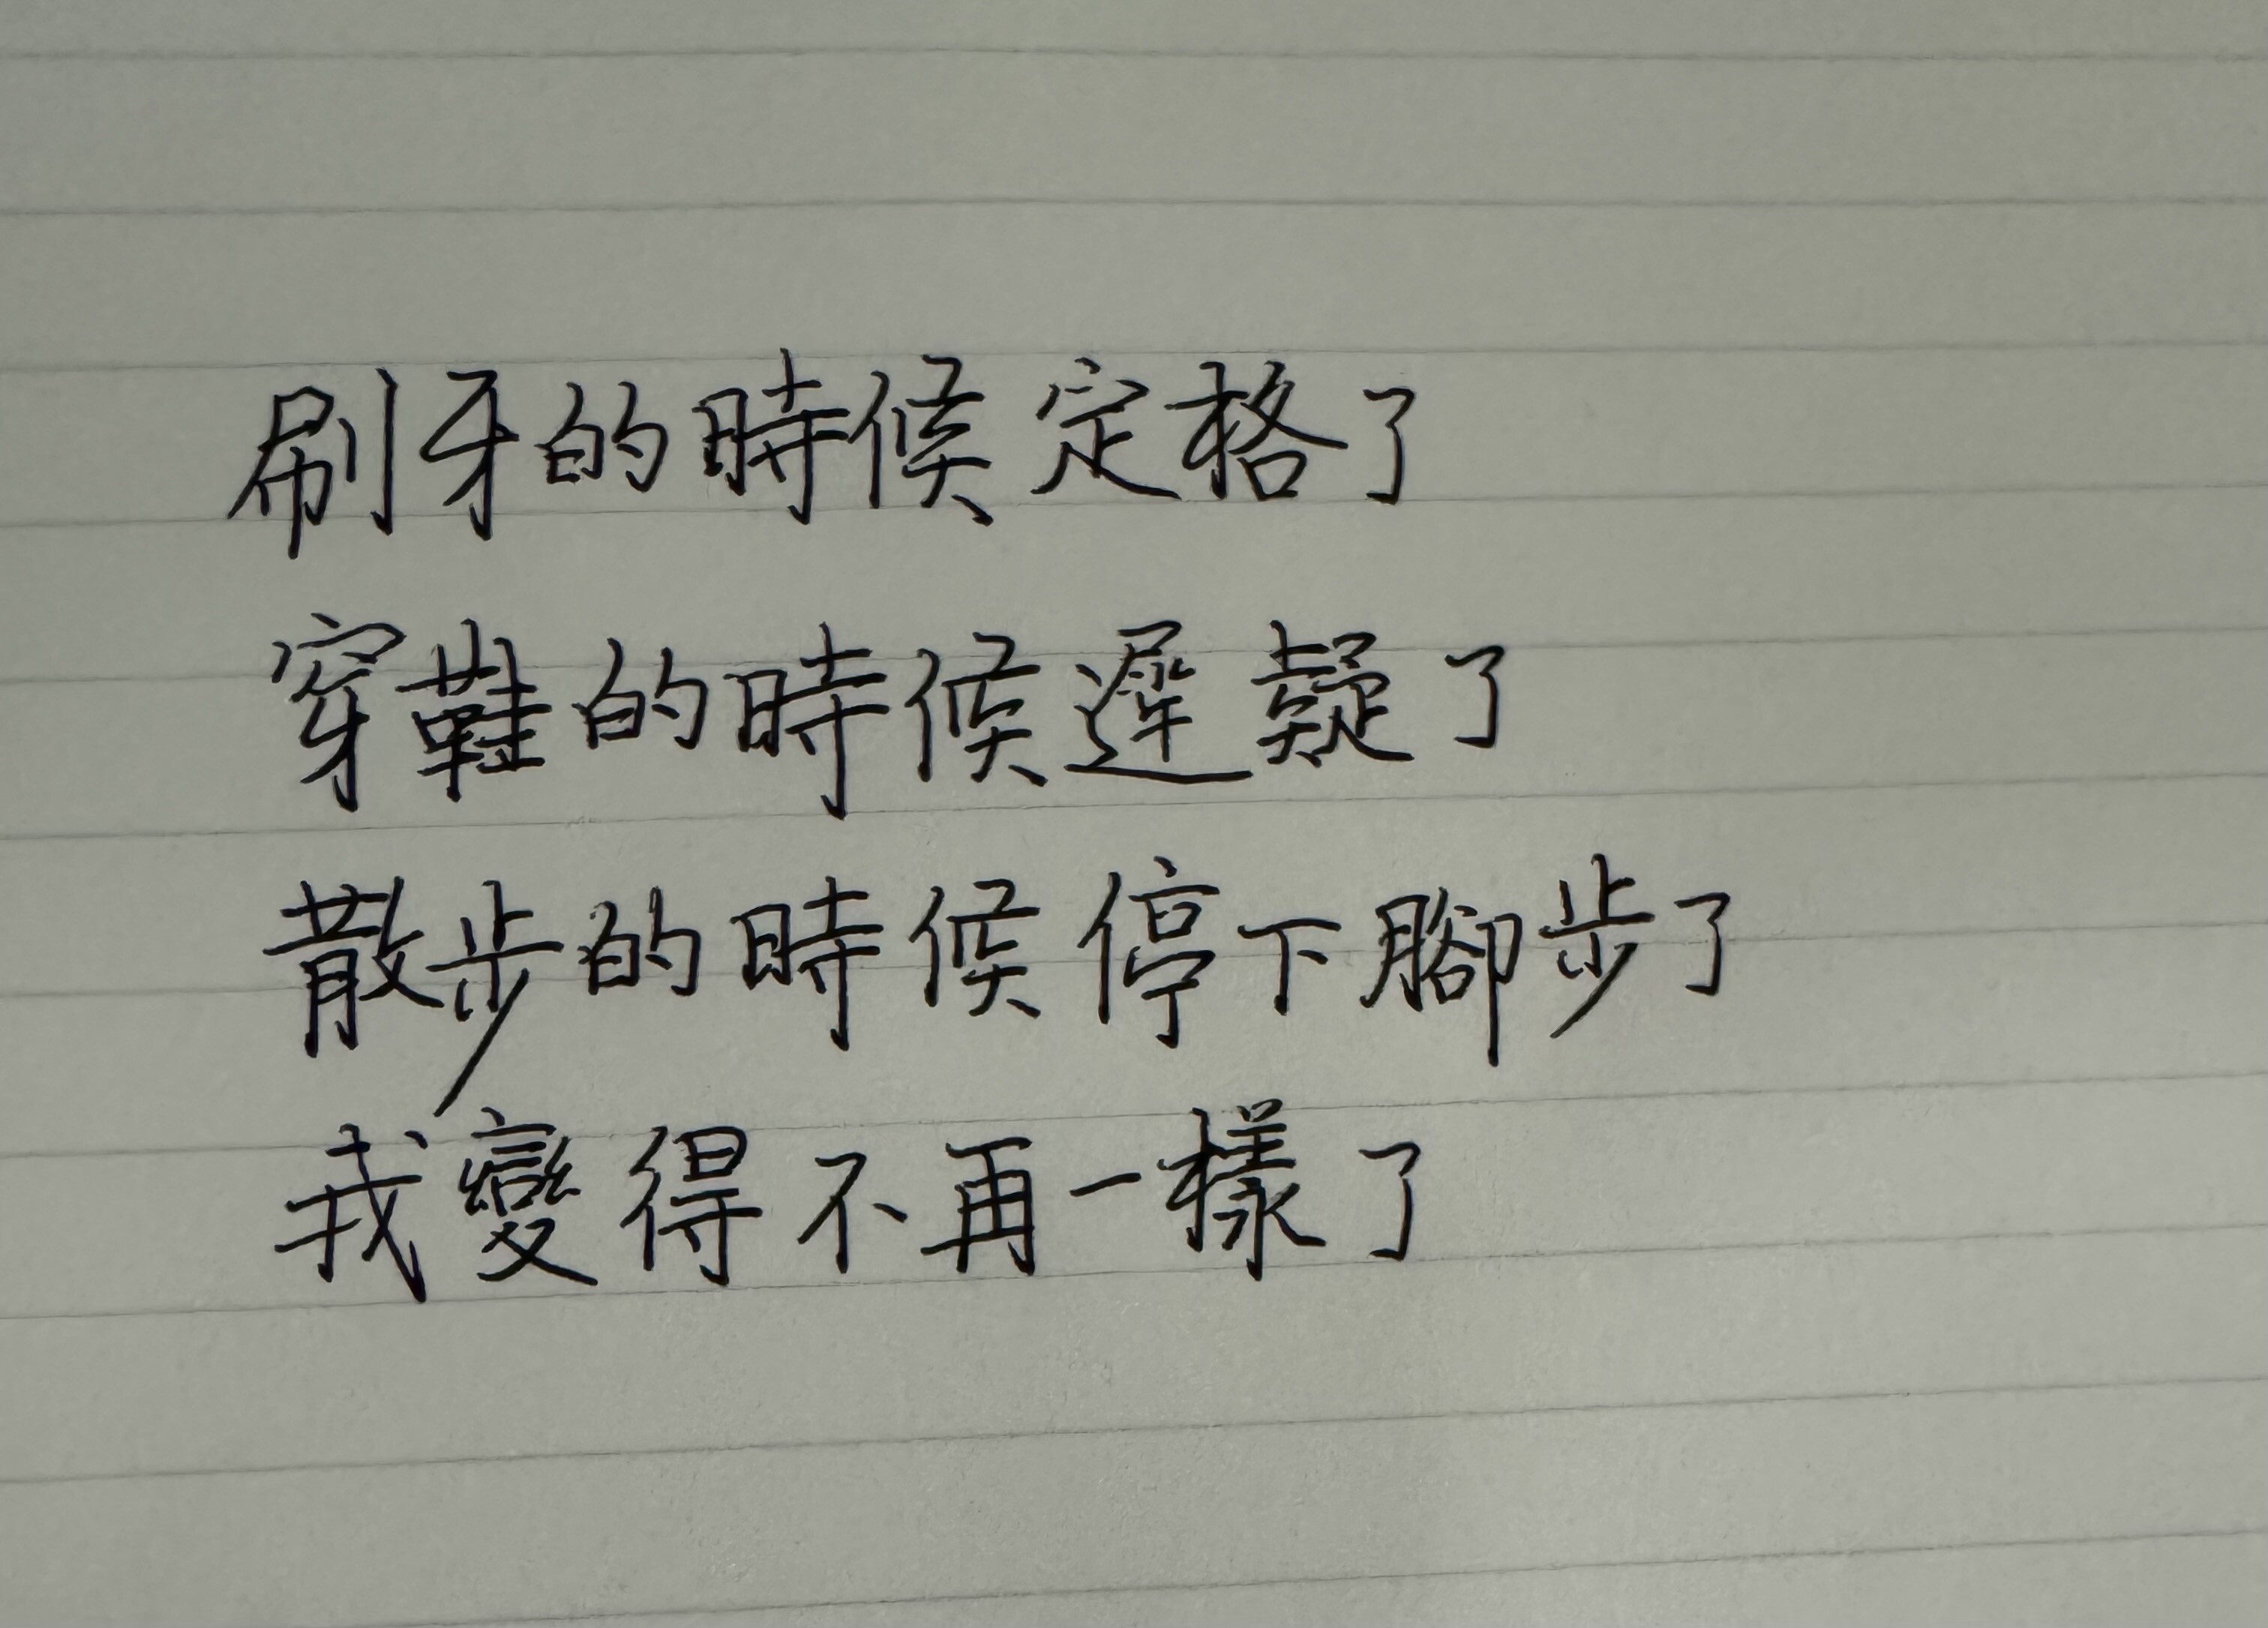 刷牙的時候定格了
穿鞋的時候遲疑了
散步的時候停下腳步了
我變得不再一樣了